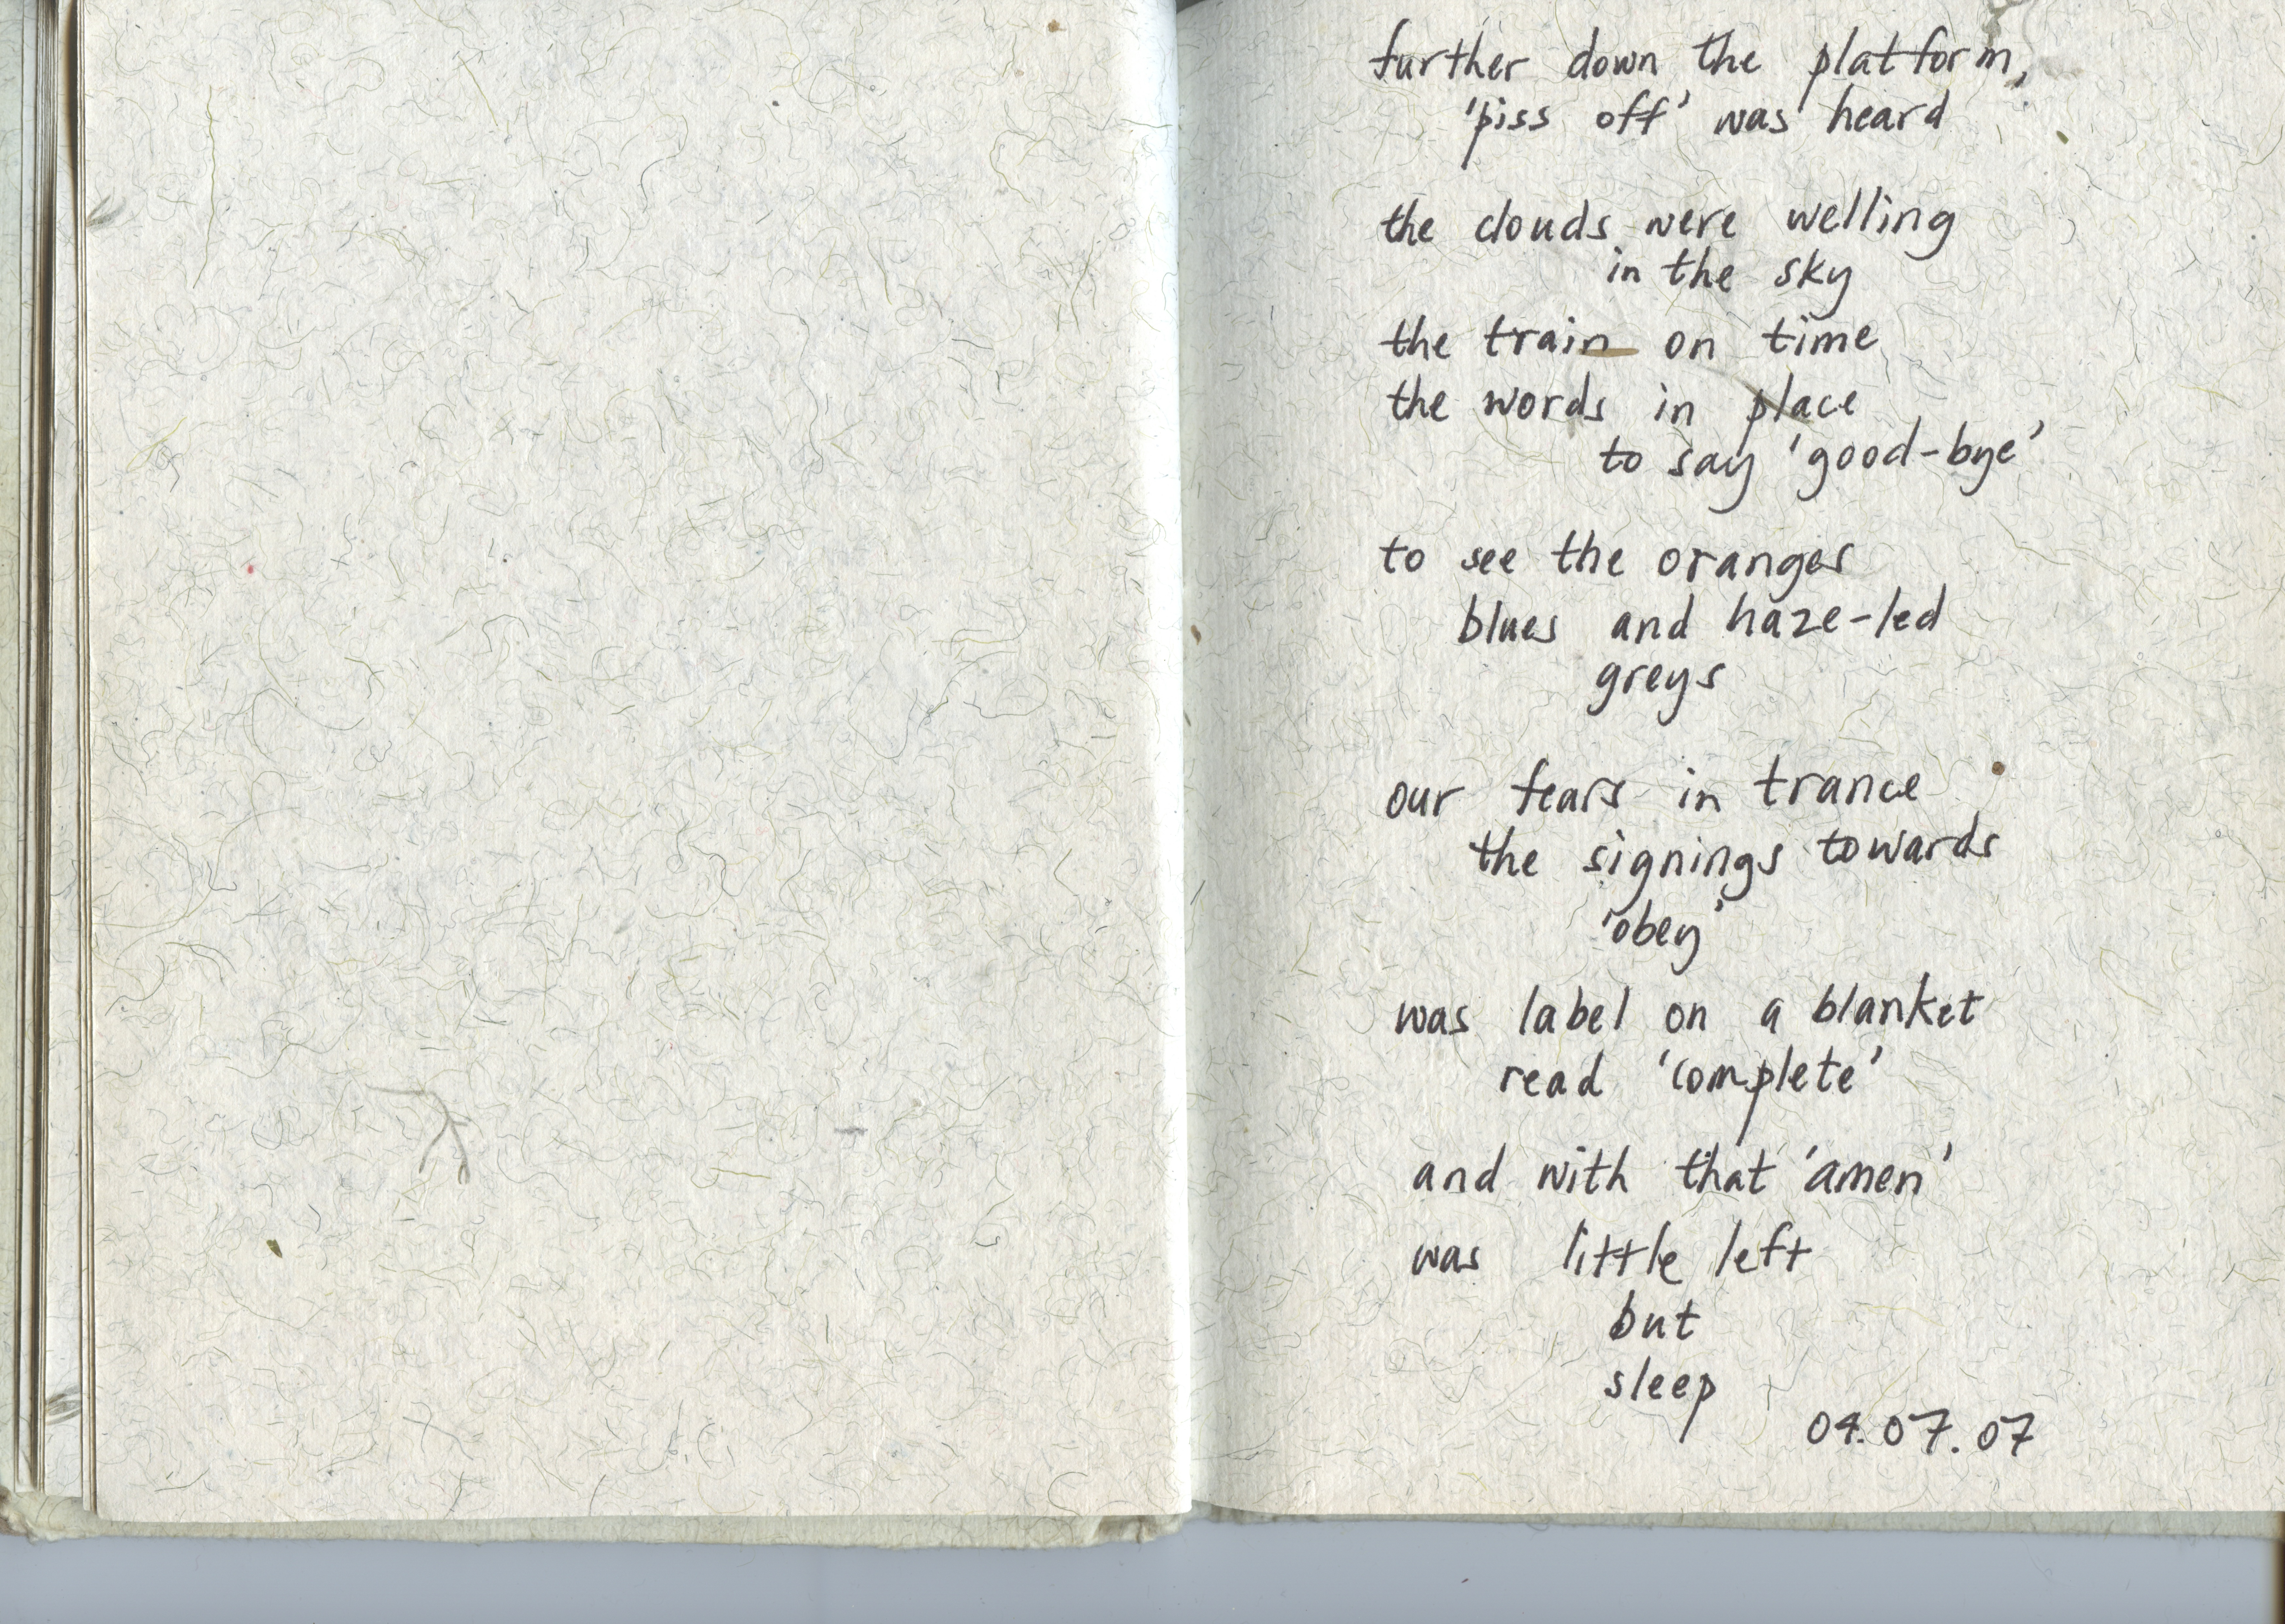 further down the platform,
'piss off' was heard
the clouds were welling
in the sky
the train on time
the words in place
to say 'good-bye'
to see the oranges
blues and haze-led
greys
our fears in trance
the signings towards
'obey'
was label on a blanket
read 'complete'
and with that 'amen'
was little left
but
sleep
04.07.07